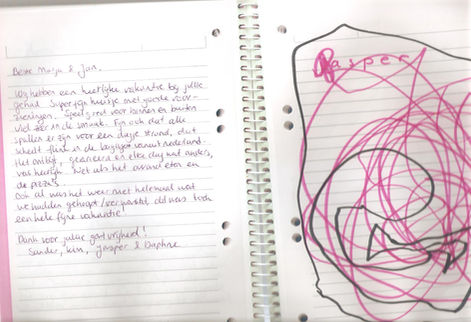 Beste Marja & Jan.
Wij hebben een heerlijke vakantie bij jullie
gehad. Superfijn huisje met goede voor-
zieningen. Speelgoed voor binnen en buiten
viel zeer in de smaak. Fijn ook dat alle
spullen er zijn voor een dagje strand, dat
scheelt flink in de bagage vanuit Nederland.
Het ontbijt, gevarieerd en elke dag wat anders,
was heerlijk. Net als het avondeten en
de pizza's.
Ook al was het weer niet helemaal wat
we hadden gehoopt / verwacht, dit was toch
een hele fijne vakantie!
Dank voor jullie gastvrijheid!
Sander, Kim, Jasper & Daphne
Jasper